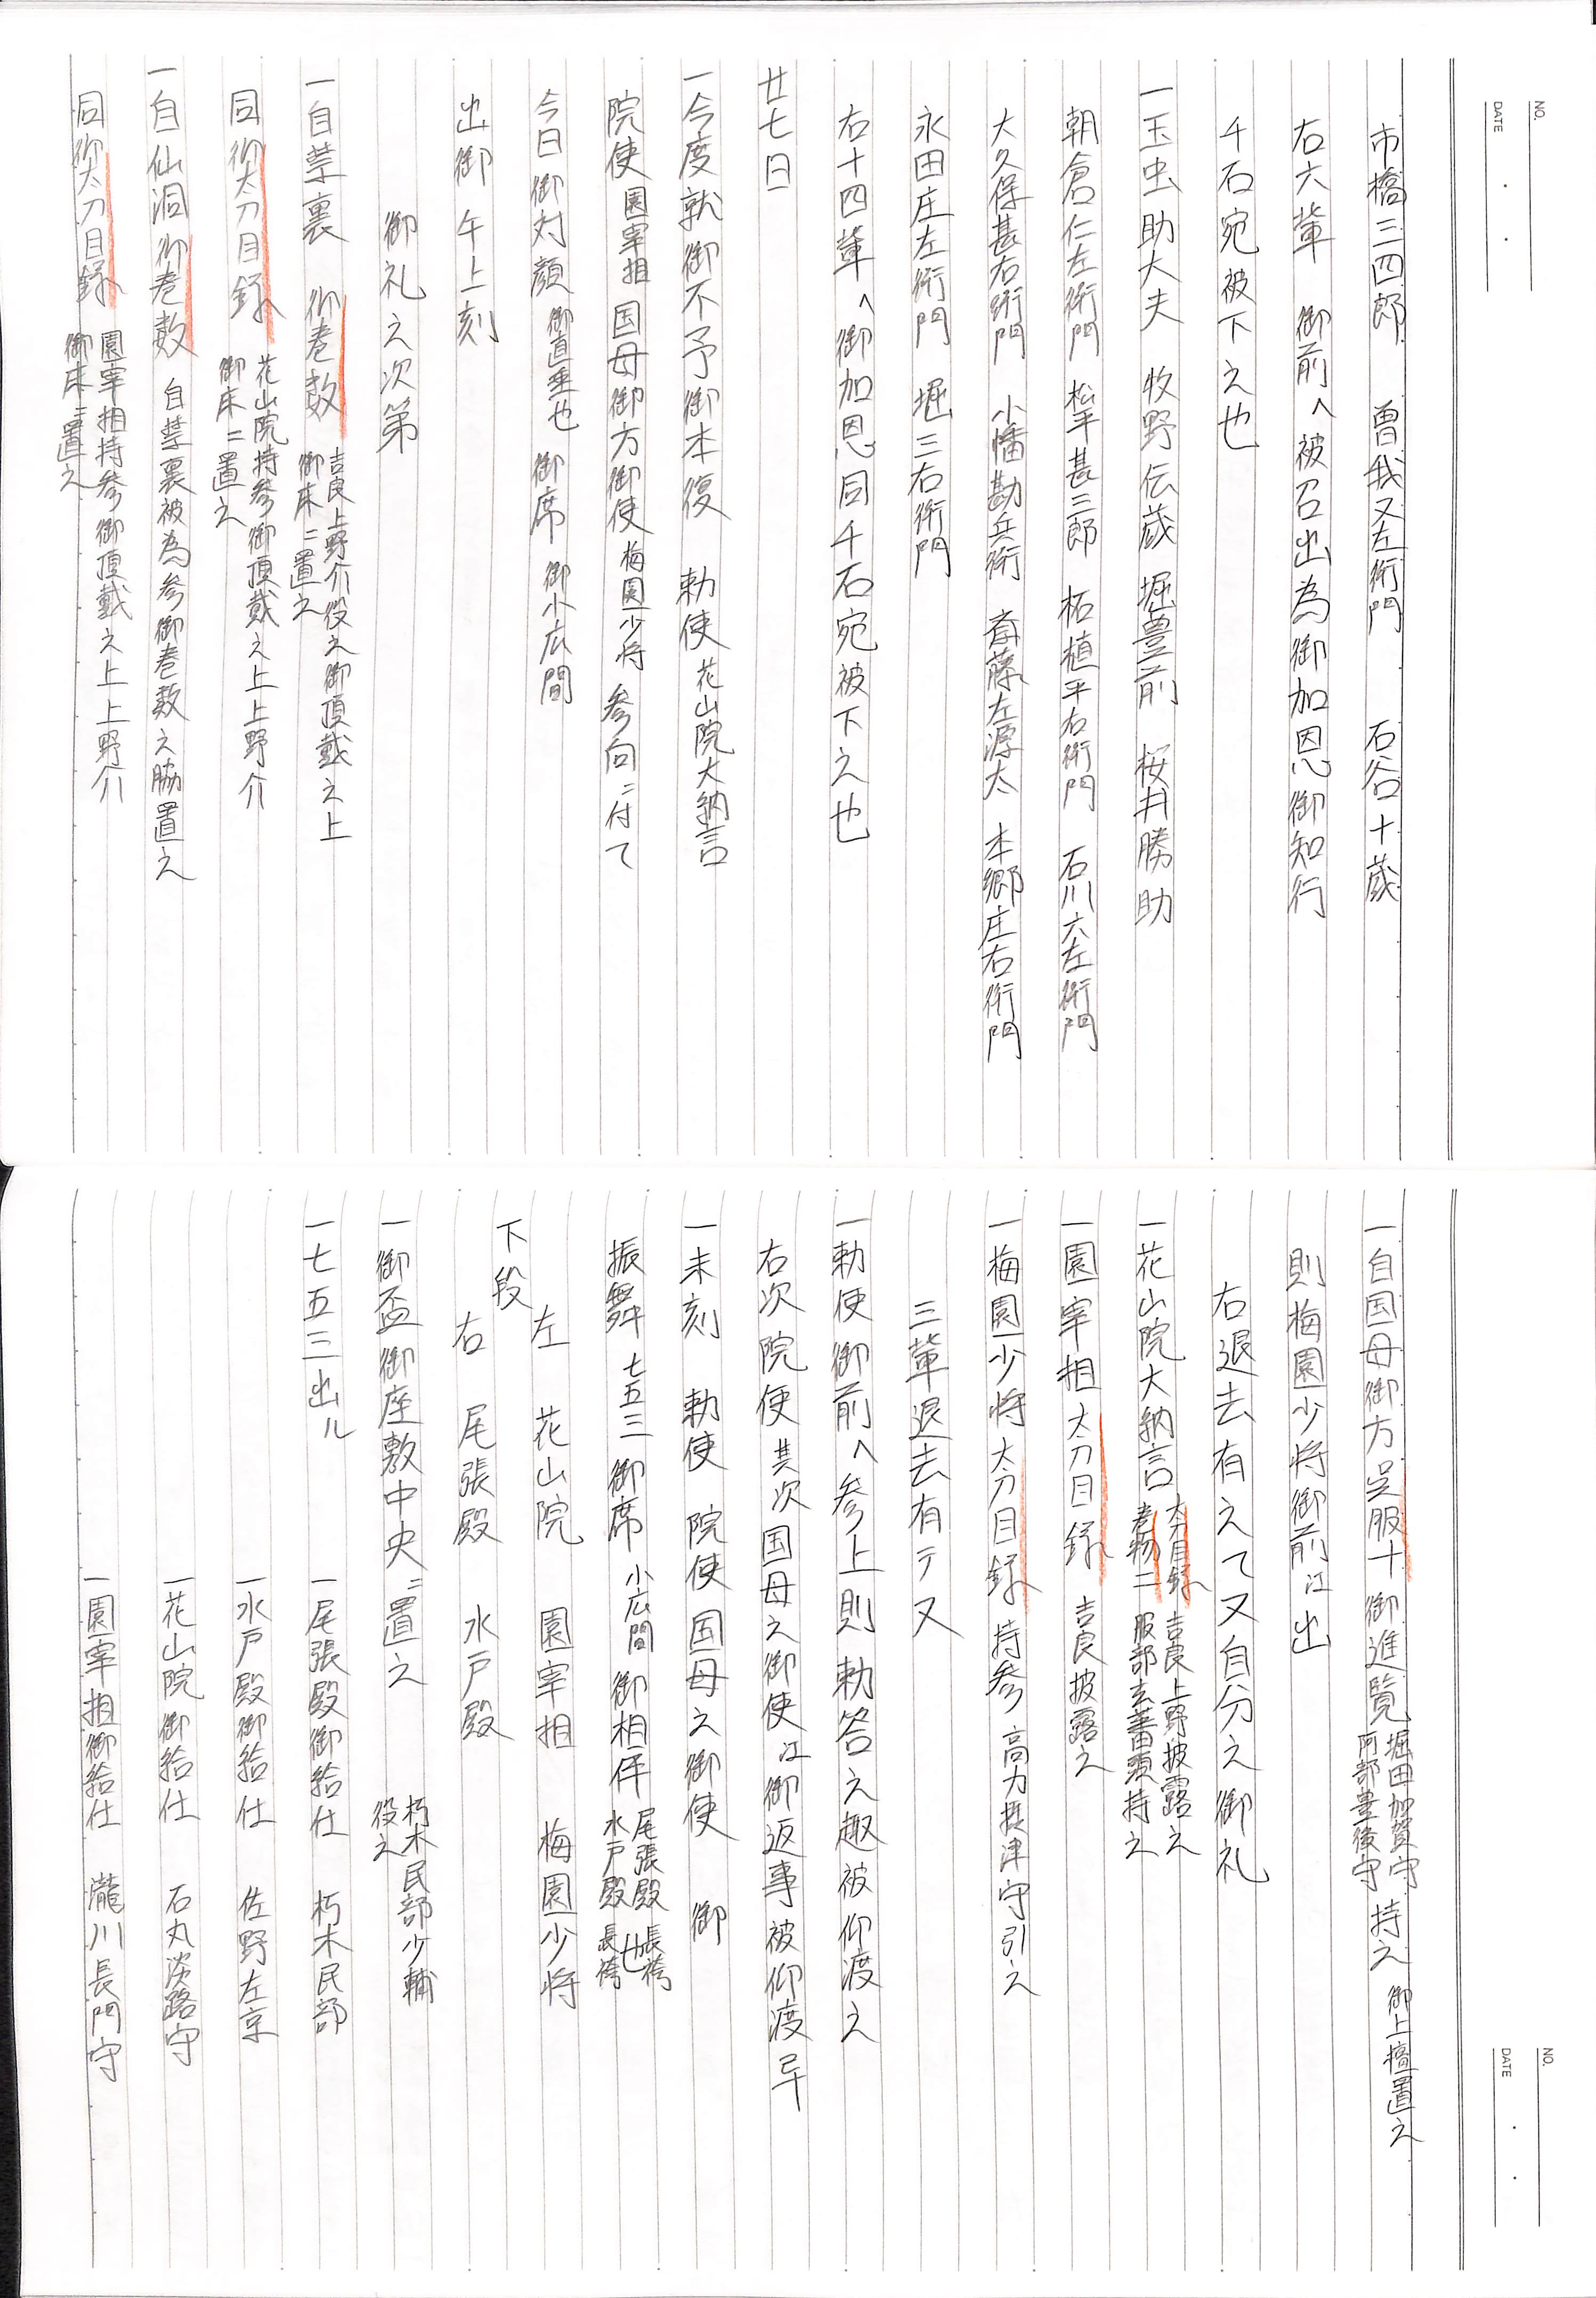 NO.
DATE
市橋三四郎 曽我又左衛門 石谷十蔵
右六輩 御前へ被召出為御加恩御知行
千石宛被下之也
一玉虫助大夫 牧野伝蔵 堀豊前 桜井勝助
朝倉仁左衛門 松平甚三郎 柘植平右衛門 石川六左衛門
大久保甚右衛門 小幡勘兵衛 斎藤左源太 本郷庄右衛門
永田庄左衛門 堀三右衛門
右十四輩へ御加恩同千石宛被下之也
廿七日
一今度就御不予御本復 勅使 花山院大納言
院使 園宰相 国母御方御使 梅園少将 参向ニ付て
今日御対顔 御直垂也 御席 御小広間
出御 午上刻
御礼之次第
一自禁裏 御巻数 吉良上野介役之御頂戴之上
御床ニ置之
同御太刀目録 花山院持参御頂戴之上上野介
御床ニ置之
一自仙洞御巻数 自禁裏被為参御巻数之脇置之
同御太刀目録 園宰相持参御頂戴之上上野介
御床ニ置之
NO.
DATE
一自国母御方呉服十御進覧 堀田加賀守
阿部豊後守 持之 御上檀置之
則梅園少将御前江出
右退去有之て又自分之御礼
一花山院大納言 太刀目録 吉良上野披露之
巻物二 服部玄蕃頭持之
一園宰相 太刀目録 吉良披露之
一梅園少将 太刀目録 持参 高力摂津守引之
三輩退去有テ又
一勅使御前へ参上則勅答之趣被仰渡之
右次院使其次国母之御使江御返事被仰渡畢
一未刻 勅使 院使 国母之御使 御
振舞 七五三 御席 小広間 御相伴 尾張殿 長袴
水戸殿 長袴 也
下段
左 花山院 園宰相 梅園少将
右 尾張殿 水戸殿
一御盃御座敷中央ニ置之 朽木民部少輔
役之
一七五三出ル 一尾張殿御給仕 朽木民部
一水戸殿御給仕 佐野左京
一花山院御給仕 石丸淡路守
一園宰相御給仕 瀧川長門守